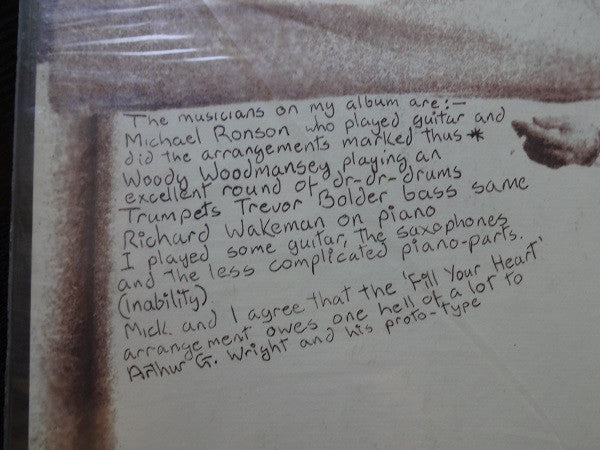 The musicians on my album are:-
Michael Ronson who played guitar and
did the arrangements marked thus *
Woody Woodmansey playing an
excellent round of dr-dr-drums
Trumpets Trevor Bolder bass same
Richard Wakeman on piano
I played some guitar, the saxophones
and the less complicated piano-parts.
(inability)
Mick and I agree that the 'Fill Your Heart'
arrangement owes one hell of a lot to
Arthur G. Wright and his proto-type